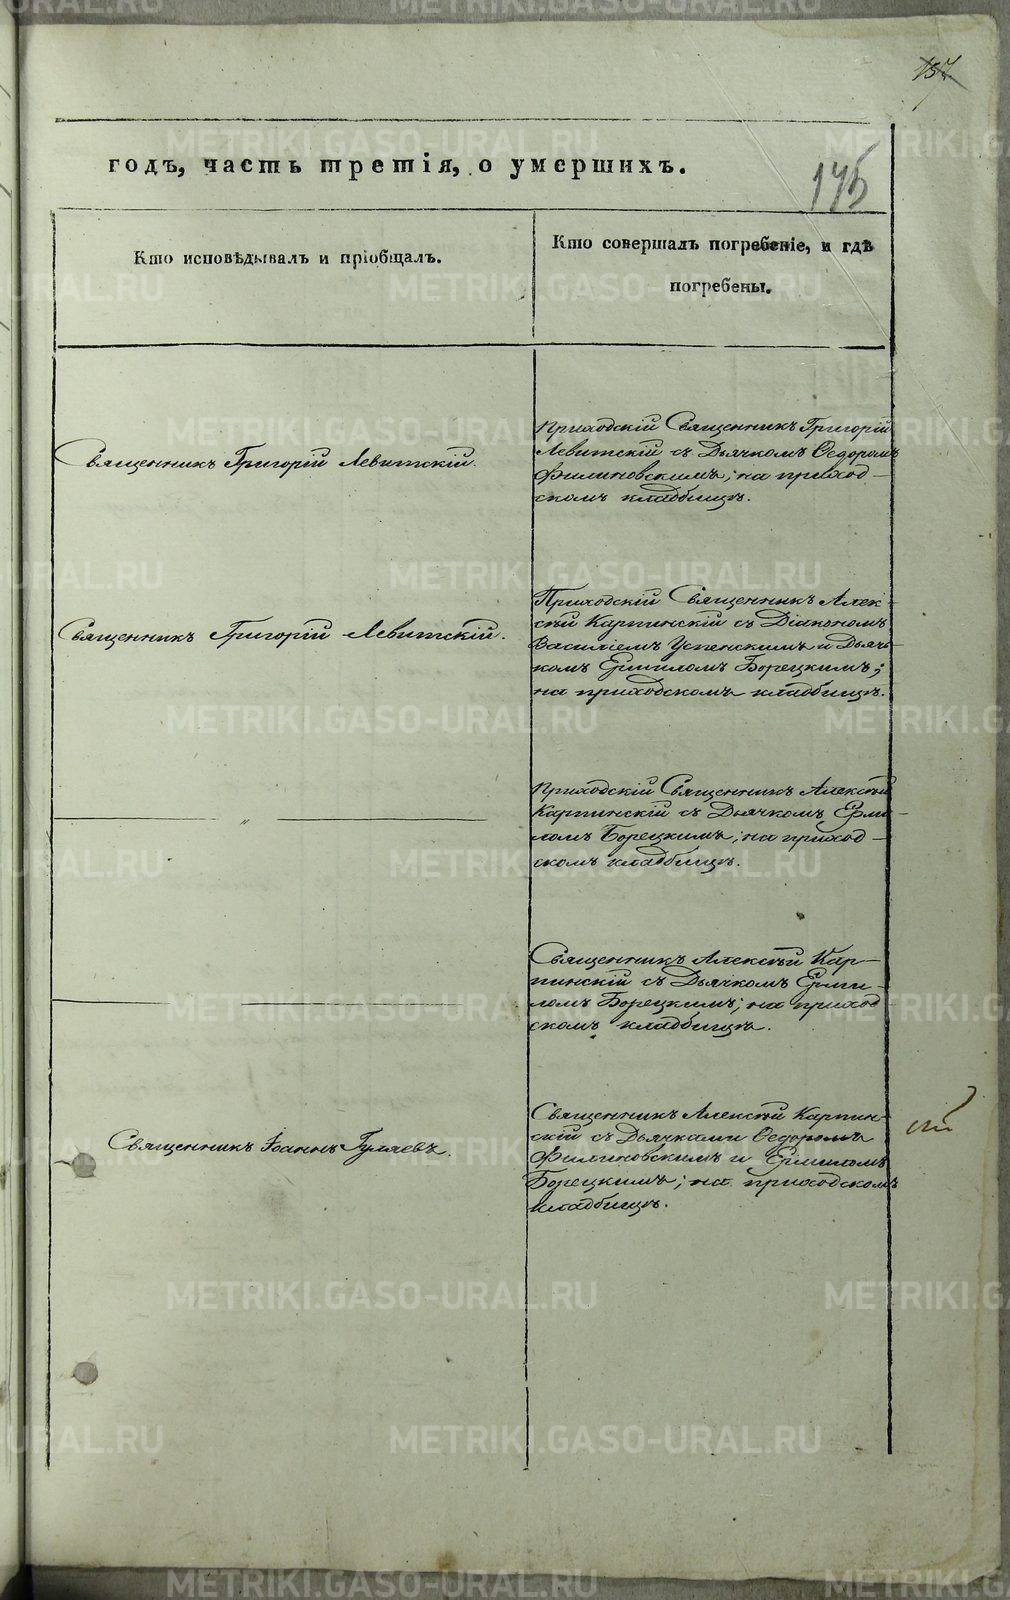 157
годъ, часть третія, о умершихъ.
175
Кто исповѣдывалъ и пріобщалъ.
Кто совершалъ погребеніе, и гдѣ
погребены.
Священникъ Григорій Левитскій.
Приходскій Священникъ Григорій
Левитскій съ Дьячкомъ Ѳедоромъ
Филиновскимъ; на приход-
скомъ кладбищѣ.
Священникъ Григорій Левитскій.
Приходскій Священникъ Алек-
сѣй Карпинскій съ Діакономъ
Василіемъ Успенскимъ и Дьяч-
комъ Ермиломъ Борецкимъ;
на приходскомъ кладбищѣ.
Приходскій Священникъ Алексѣй
Карпинскій съ Дьячкомъ Ерми-
ломъ Борецкимъ; на приход-
скомъ кладбищѣ.
Священникъ Алексѣй Кар-
пинскій съ Дьячкомъ Ерми-
ломъ Борецкимъ; на приход
скомъ кладбищѣ.
Священникъ Іоаннъ Гуляевъ.
Священникъ Алексѣй Карпин-
скій съ Дьячками Ѳедоромъ
Филиновскимъ и Ермиломъ
Борецкимъ; на приходскомъ
кладбищѣ.
METRIKI.GASO-URAL.RU